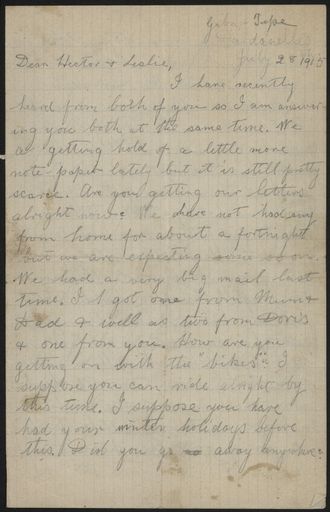 Gaba Tepe
Dardanelles
July 28 1915
Dear Hector & Leslie,
I have recently
heard from both of you so I am answer-
ing you both at the same time. We
are getting hold of a little more
note-paper lately but it is still pretty
scarce. Are you getting our letters
alright now? We have not had any
from home for about a fortnight
but we are expecting some soon.
We had a very big mail last
time. I got one from Mum &
Dad & well as two from Doris
& one from you. How are you
getting on with the "bikes"? I
suppose you can ride alright by
this time. I suppose you have
had your winter holidays before
this. Did you go away anywhere?